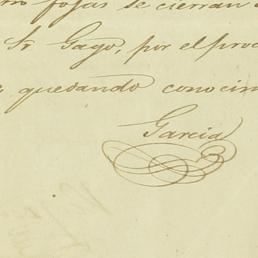 fojas se cierran
Sr Gago, por el proc
quedando conocim
Garcia